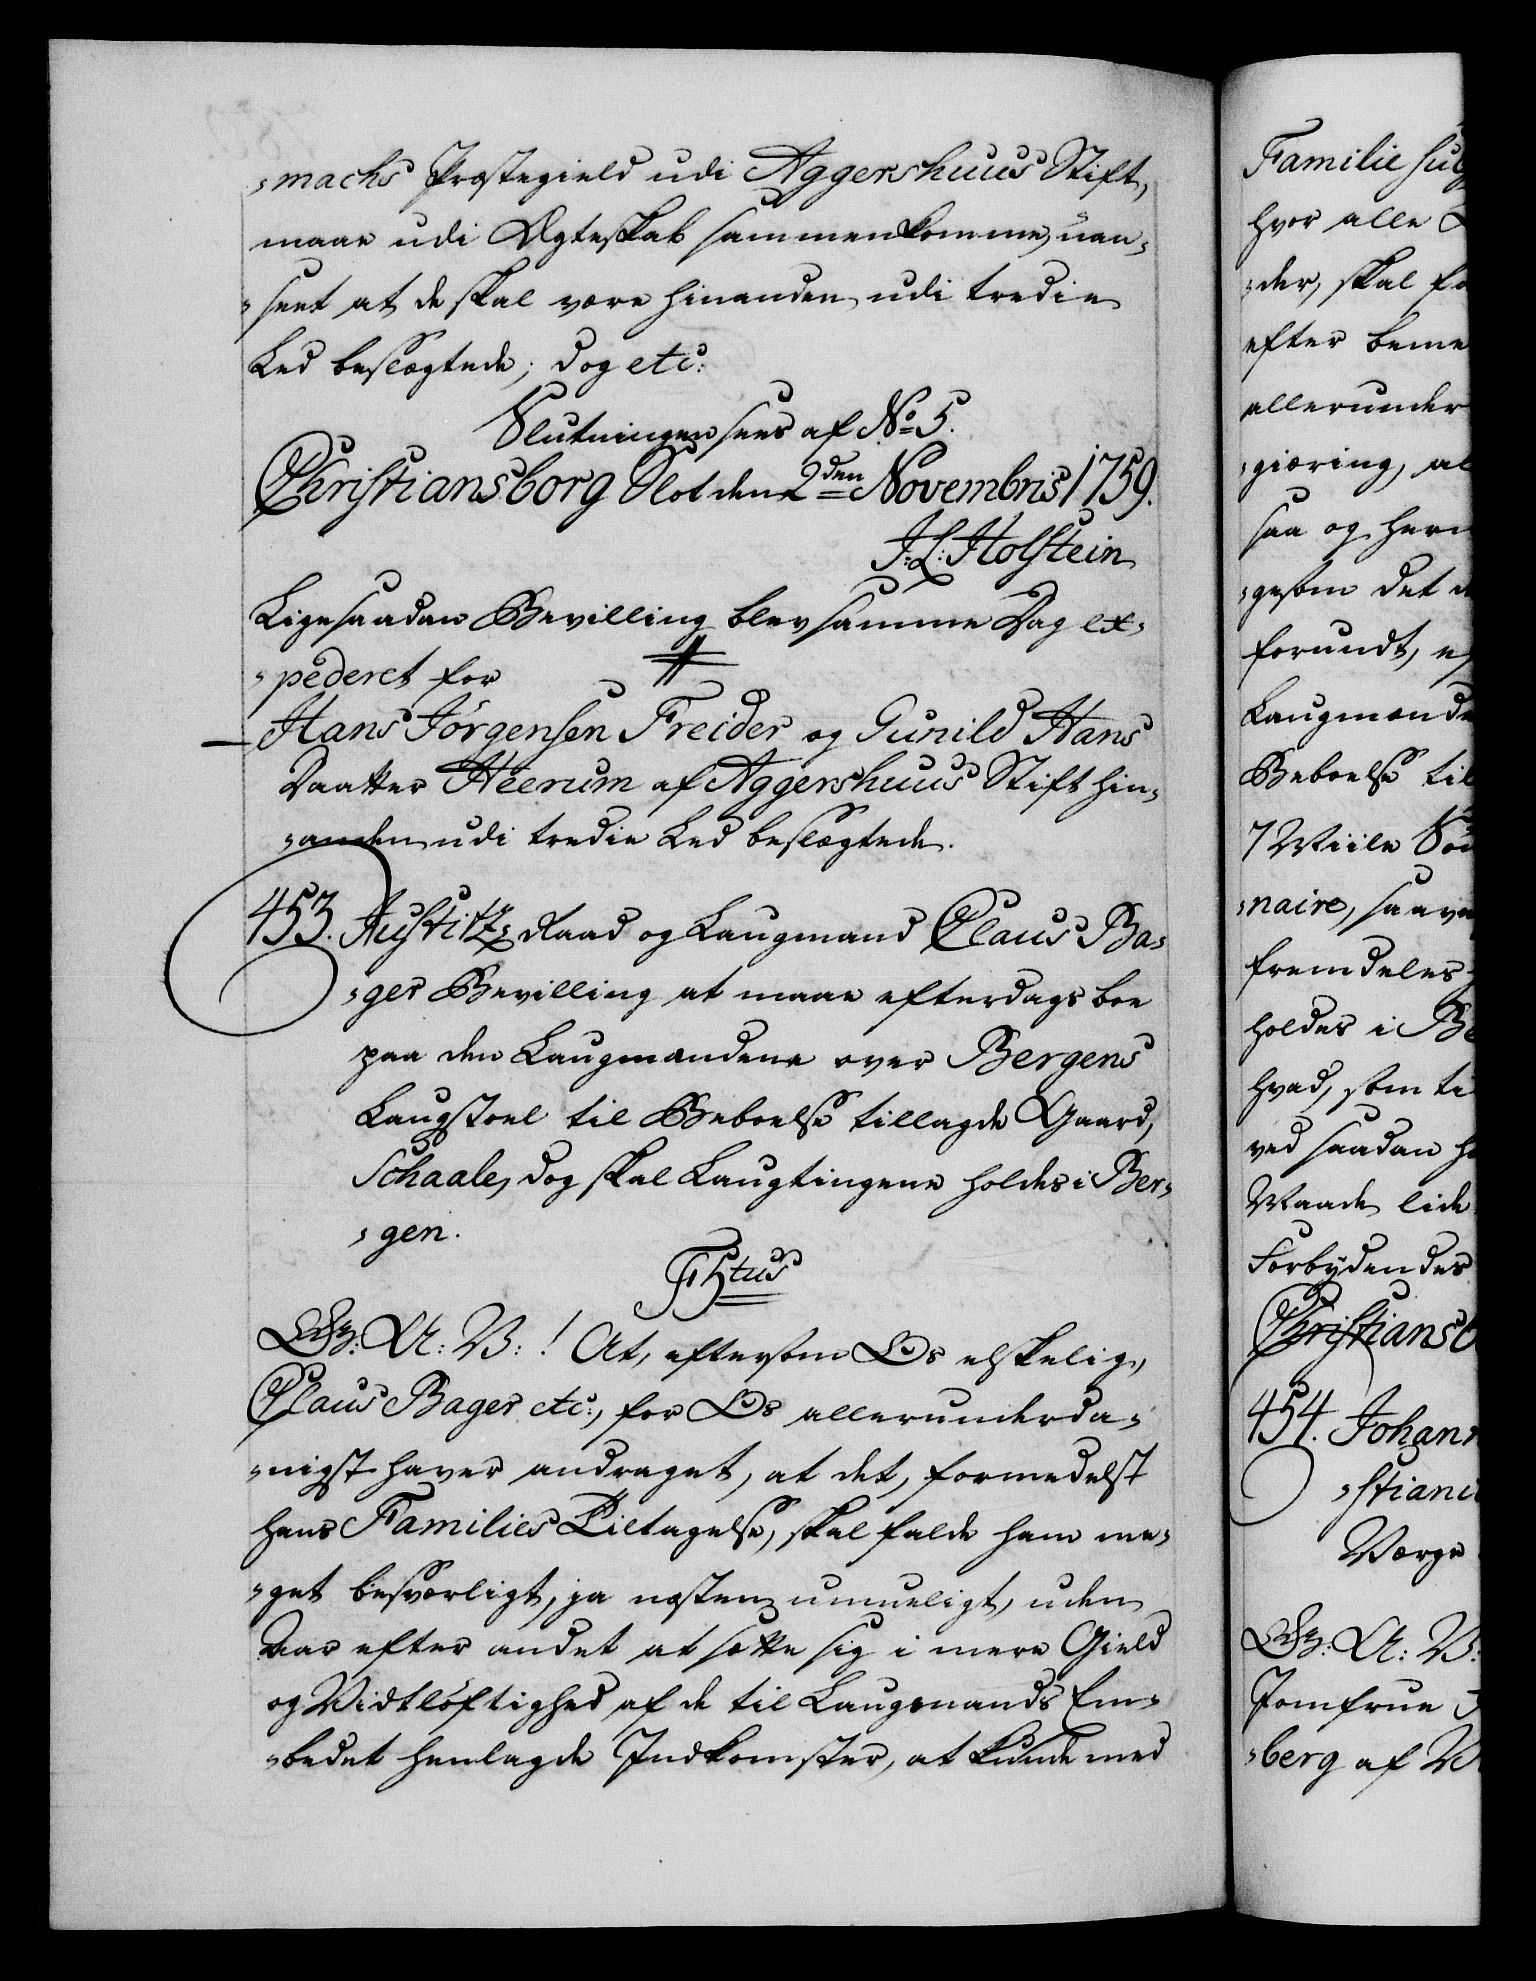 -machs Præstegield udi Aggershuus Stift,
maae udi Ægteskab sammenkomme, uan-
-seet at de skal være hinanden udi tredie
Led beslægtede; dog etc:
Slutningen sees af No 5.
Christiansborg Slot den 2den Novembris 1759.
J: L: Holstein
Ligesaadan Bevilling blev samme Dag ex-
-pederet for
Hans Jörgensen Freider og Gunild Hans
Daatter Heerum af Aggershuus Stift hin-
-anden udi tredie Led beslægtede.
453. Justitz-Raad og Laugmand Claus Ba-
-ger Bevilling at maae efterdags boe
paa den Laugmændene over Bergens
Laugstoel til Beboelse tillagde Gaard,
Schaale, dog skal Laugtingene holdes i Ber-
-gen.
F 5tus
G: A: V: ! At, eftersom Os elskelig,
Claus Bager etc:, for Os allerunderda-
-nigst haver andraget, at det, formedelst
hans Families Tiltagelse, skal falde ham me-
-get besværligt, ja næsten umueligt, uden
Aar efter andet at sætte sig i mere Gield
og Vidtløftighed af de til Laugmands Em-
-bedet henlagde Indkomster, at kunde med
Familie
hvor alle
-der, skal
efter
allerunder
-giæring,
saa og
-gesom det
forundt,
Laugmænd
Beboelse til
7 Miile
-naire,
fremdeles
holdes i Be
hvad, som
ved saadan
Maade lide
Forbydendes
Christiansb
454. Johan
-stian
Værge
G: A: V:
Jomfrue
-berg af